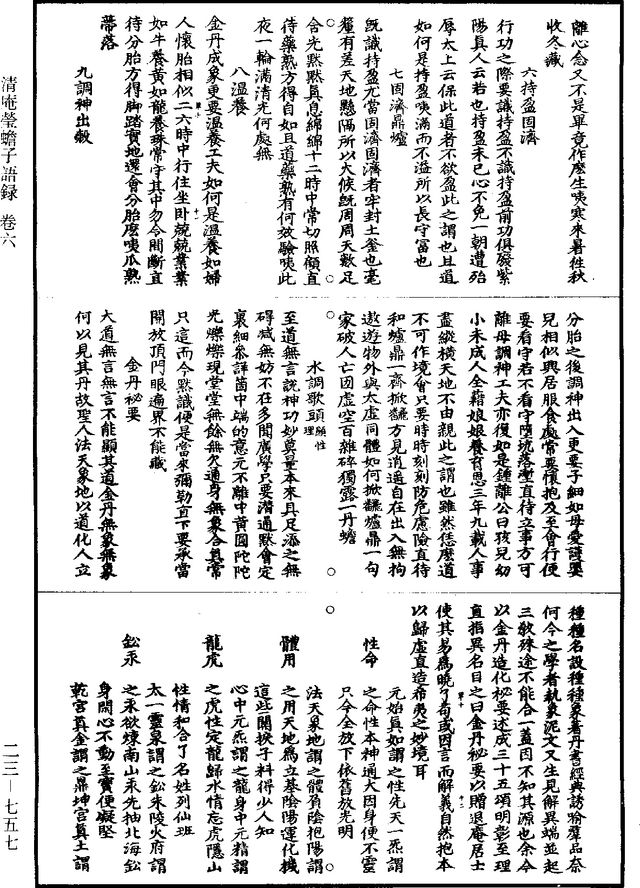 離心念又不是畢竟作麼生咦寒來暑徃秋
收冬藏
六持盈固濟
行功之際要識持盈不識持盈前功俱發紫
陽真人云若也持盈未已心不免一朝遭殆
辱太上云保此道者不欲盈此之謂也且道
如何是持盈咦滿而不溢所以長守富也
七固濟鼎爐
旣識持盈尤當固濟固濟者牢封土釜也毫
釐有差天地懸隔所以火候旣周周天數足
含光默默真息綿綿十二時中常切照顧直
待藥熟方得自如且道藥熟有何效驗咦此
夜一輪滿清光何處無
八溫養
金丹成象更要溫養工夫如何是溫養如婦
人懷胎相似二六時中行住坐卧兢兢業業
如牛養黃如龍養珠常守其中勿令間斷直
待分胎方得脚踏實地還會分胎麼咦瓜熟
蒂落
九調神出殻
分胎之後調神出入更要子細如母愛護嬰
兒相似興居服食處常要懷抱及至會行便
要看守若不看守墮坑落壍直待立事方可
離母調神工夫亦復如是鍾離公曰孩兒幼
小未成人全藉娘娘養育恩三年九載人事
盡縱橫天地不由親此之謂也雖然恁麼道
不可作境會只要時時刻刻防危慮險直待
和爐鼎一齊掀飜方見逍遥自在出入無拘
遨遊物外與太虛同體如何掀飜爐鼎一句
家破人亡因虛空百雜碎獨露一丹蟾
水調歌頭顯性理
至道無言說神功妙莫量本來具足添之無
碍減無妨不在多聞廣學只要潛通默會定
裏細叅詳箇中端的意元不離中黃圓陀陀
光爍爍現堂堂無餘無欠通身無象合真常
只這而今默識便是當來彌勒直下要承當
開放頂門眼遍界不能藏
金丹秘要
大道無言無言不能顯其道金丹無象無象
何以見其丹故聖人法天象地以道化人立
種種名設種種象著丹書經典誘喻羣品柰
何今之學者執象泥文又生見解異端並起
三教殊途不能合一蓋因不知其源也余今
以金丹造化秘要述成三十五頌明彰至理
直指異名目之曰金丹秘要以贈退庵居士
使其易爲曉了苟或因言而解義自然抱本
以歸虛直造希夷之妙境耳
性命
元始真如謂之性先天一炁謂
之命性本神通大因身便不靈
只今全放下依舊放光明
體用
法天象地謂之體負陰抱陽謂
之用天地爲立基陰陽運化機
這些關捩子料得少人知
龍虎
心中元炁謂之龍身中元精謂
之虎性定龍歸水情忘虎隱山
性情和合了名姓列仙班
鉛汞
太一靈泉謂之鉛朱陵火府謂
之汞欲煉南山汞先抽北海鉛
身閑心不動至寶便凝堅
乾宮真金謂之鼎坤宮真土謂
清庵瑩蟾子語録 卷六
二三—七五七